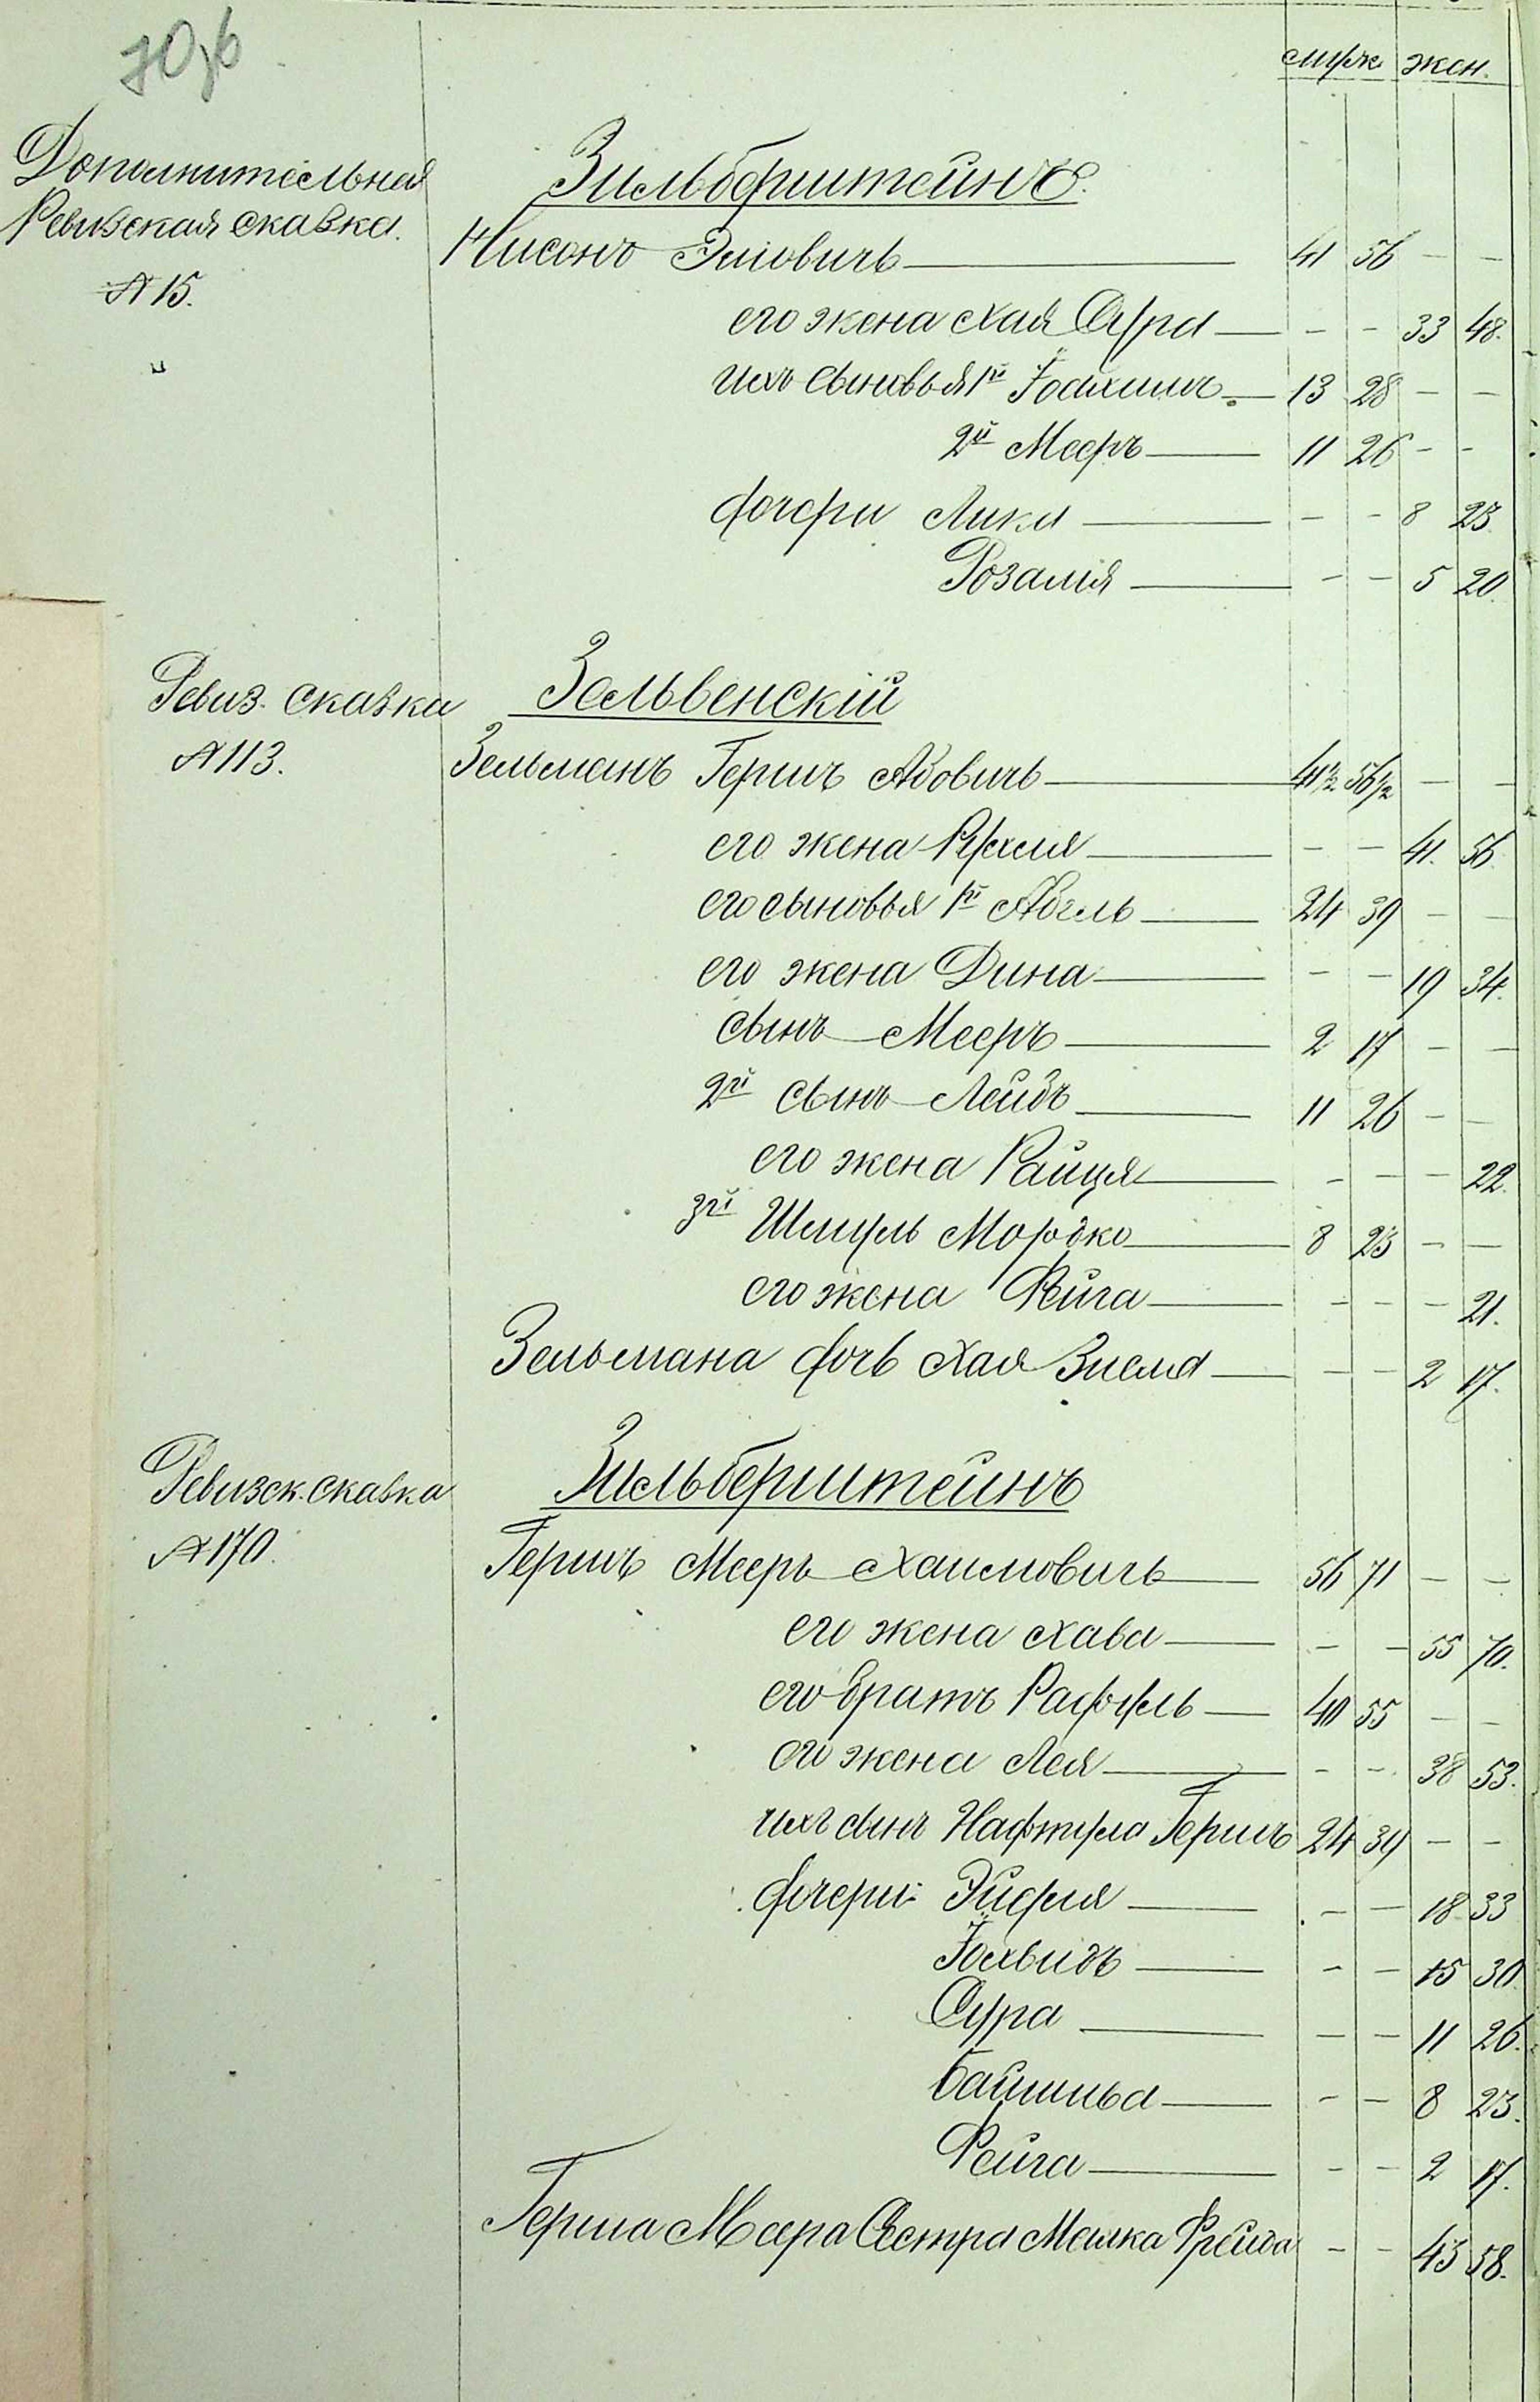 муж. жен.
Дополнительная
Ревизская сказка.
№ 15.
"
Зильберштейнъ.
Нисонъ Элiовичъ 41 56 - -
его жена Хая Сура - - 33 48.
ихъ сыновья 1й Iоахимъ 13 28 - -
2й Мееръ 11 26 - -
дочери Лика - - 8 23.
Розалiя - - 5 20.
Ревиз. сказка
№ 113.
Зельвенскiй
Зельманъ Гершъ Абовичъ 41½ 56½ - -
его жена Рухля - - 41. 56.
его сыновья 1й Абель 24 39 - -
его жена Дина - - 19 34.
сынъ Мееръ 2 17 - -
2й сынъ Лейбъ 11 26 - -
его жена Райця - - - 22.
3й Шмуль Мордко 8 23 - -
его жена Фейга - - - 21.
Зельмана дочь Хая Злема - - 2 17.
Ревизск. сказка
№ 170.
Зильберштейнъ
Гершъ Мееръ Хаимовичъ 56 71 - -
его жена Хава - - 55 70.
его братъ Рафуль 40 55 - -
его жена Лея - - 38 53.
ихъ сынъ Нафтула Гершъ 24 39 - -
дочери: Эйдля - - 18 33
Iохвидъ - - 15 30.
Сура - - 11 26.
Башива - - 8 23.
Фейга - - 2 17.
Герша Меера Сестра Малка Фрейда - - 43 58.